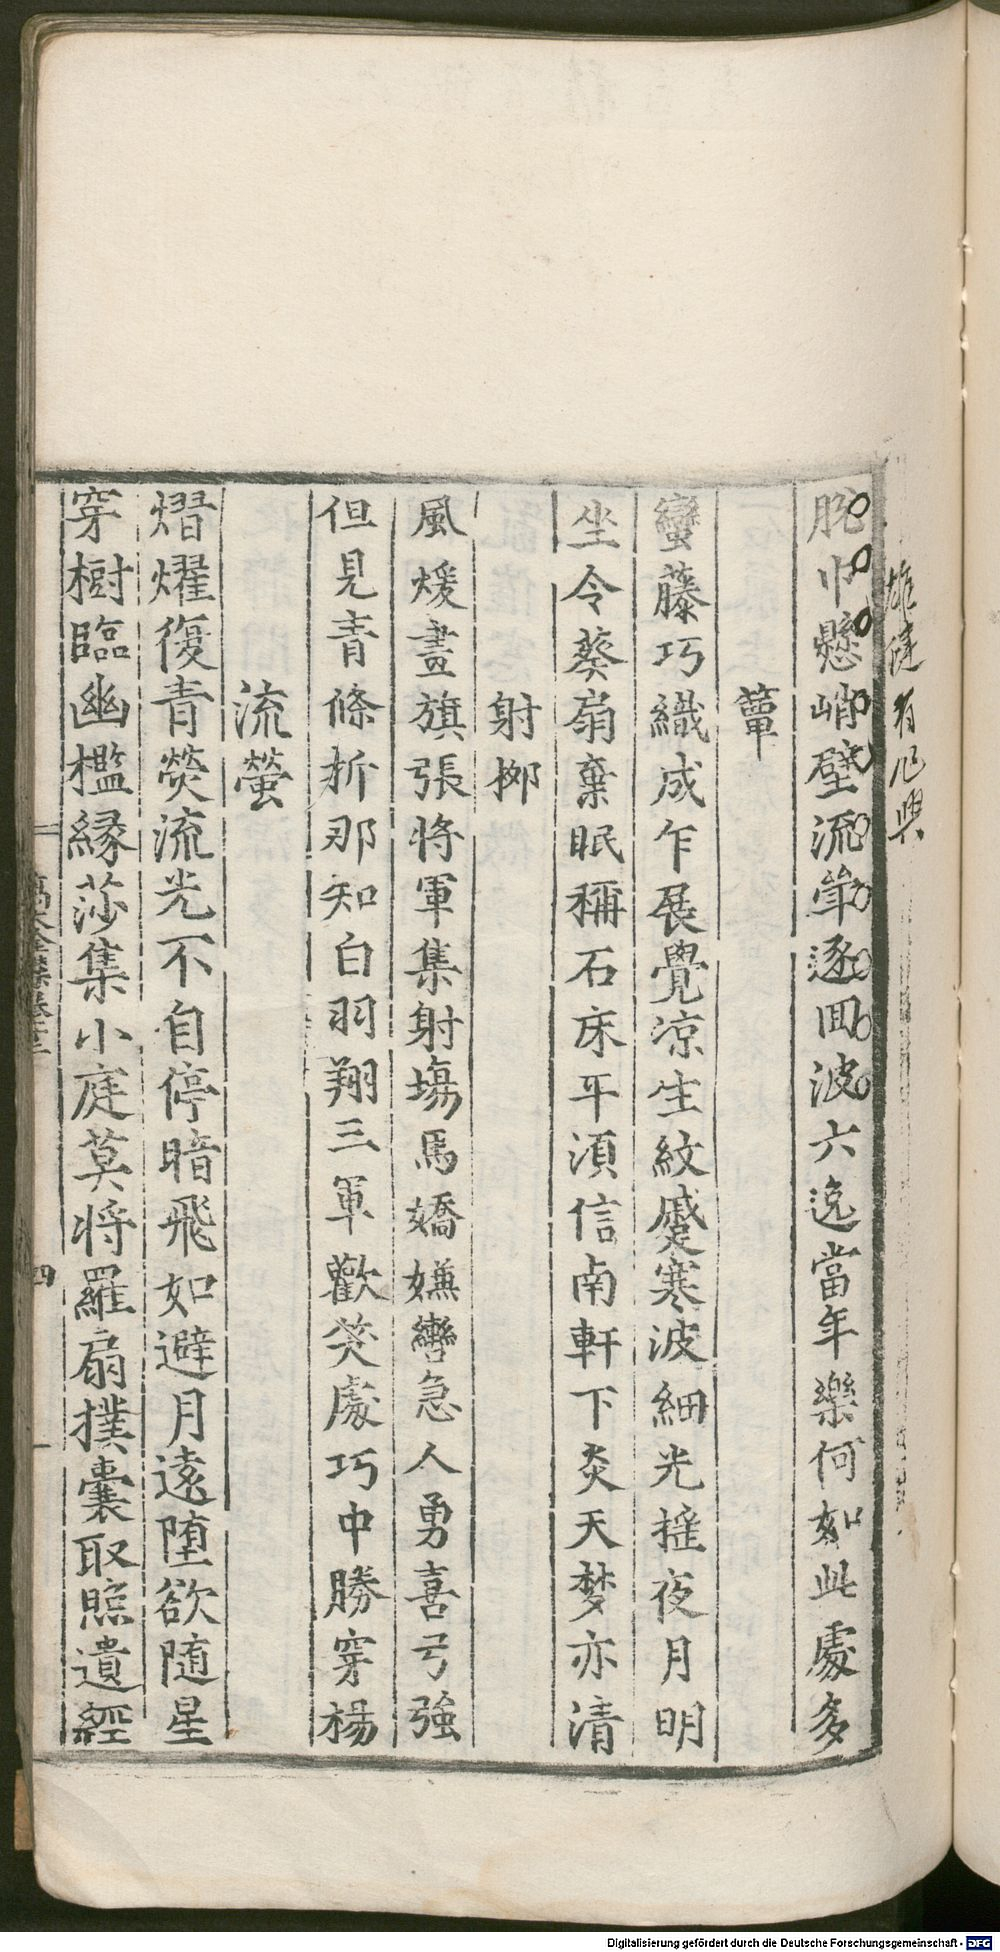 雄健有逸興
脫巾懸峭壁流觴逐回波六逸當年樂何如此處多
簟
蠻藤巧織成乍展覺凉生紋蹙寒波細光搖夜月明
坐令葵扇棄眠稱石床平湏信南軒下炎天梦亦清
射柳
風煖畫旗張将軍集射塲馬嬌嫌轡急人勇喜弓強
但見青條折那知白羽翔三軍歡笑處巧中勝穿楊
流螢
熠燿復青熒流光不自停暗飛如避月遠墮欲随星
穿樹臨幽檻縁莎集小庭莫将羅扇撲囊取照遺經
高太全集卷十三
四
Digitalisierung gefördert durch die Deutsche Forschungsgemeinschaft - DFG